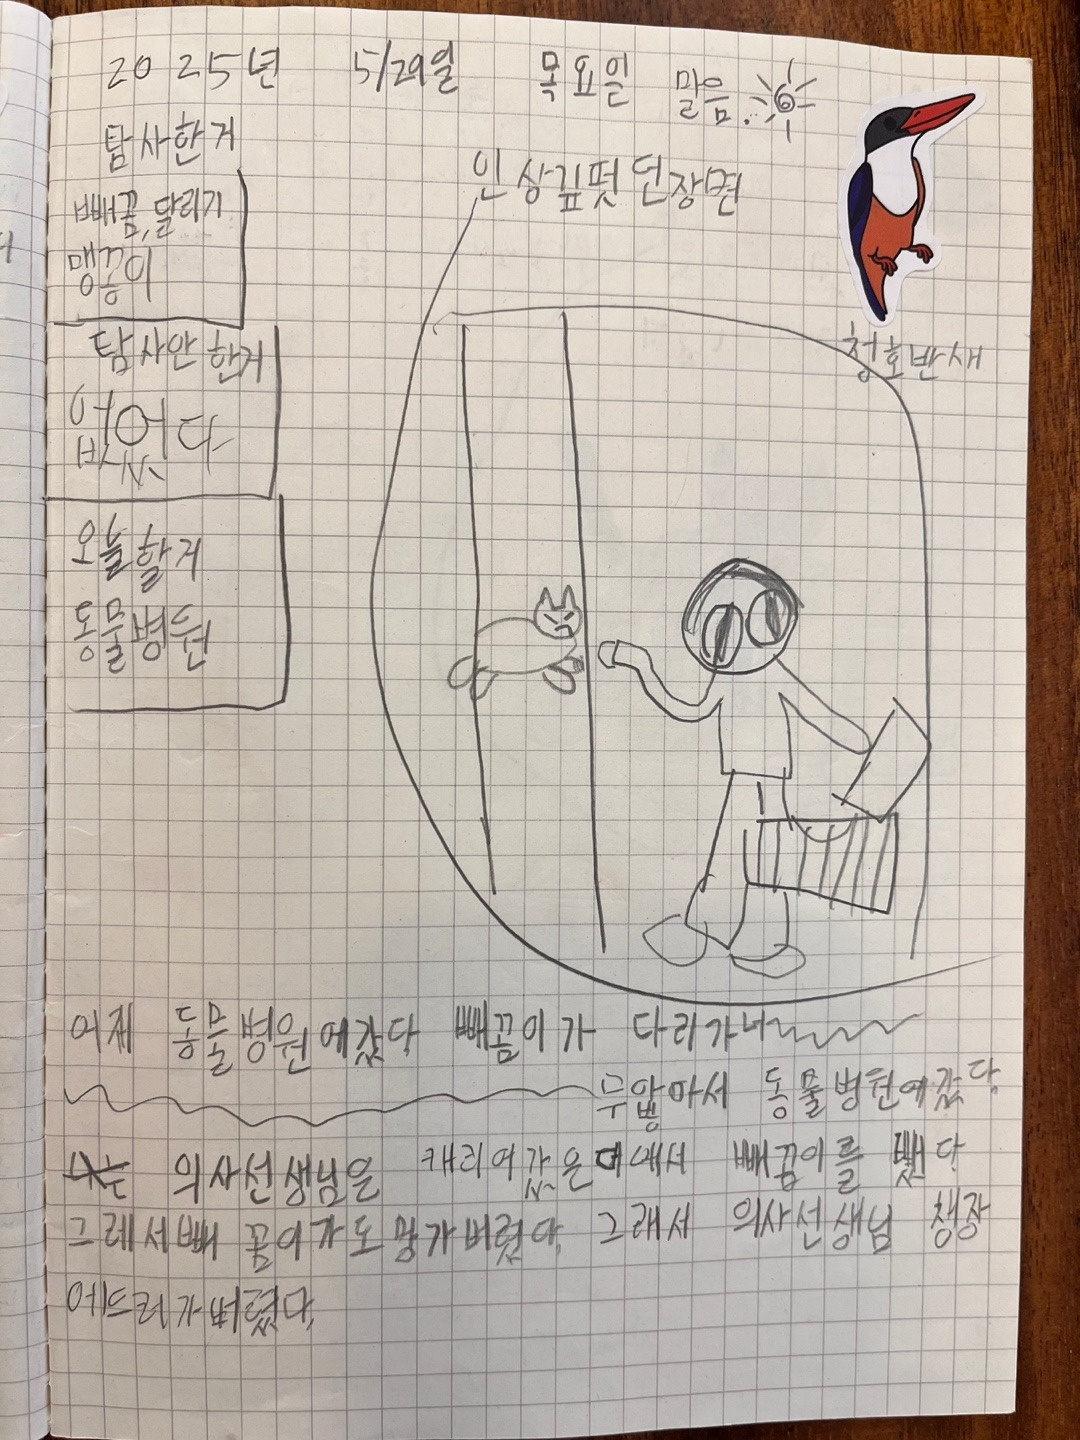 2025년 5/29일 목요일 맑음
탐사한거
빼꼼, 달리기
맹꽁이
탐사안한거
없었다
오늘할거
동물병원
인상깊펏던장면
청호반새
어제 동물병원에갔다 빼꼼이가 다리가너
무앞마서 동물병원에갔다
의사선생님은 캐리여같은데에서 빼꼼이를 뺐다
그레서빼꼼이가도망가버렸다. 그래서 의사선생님 책장
에드러가버렸다.